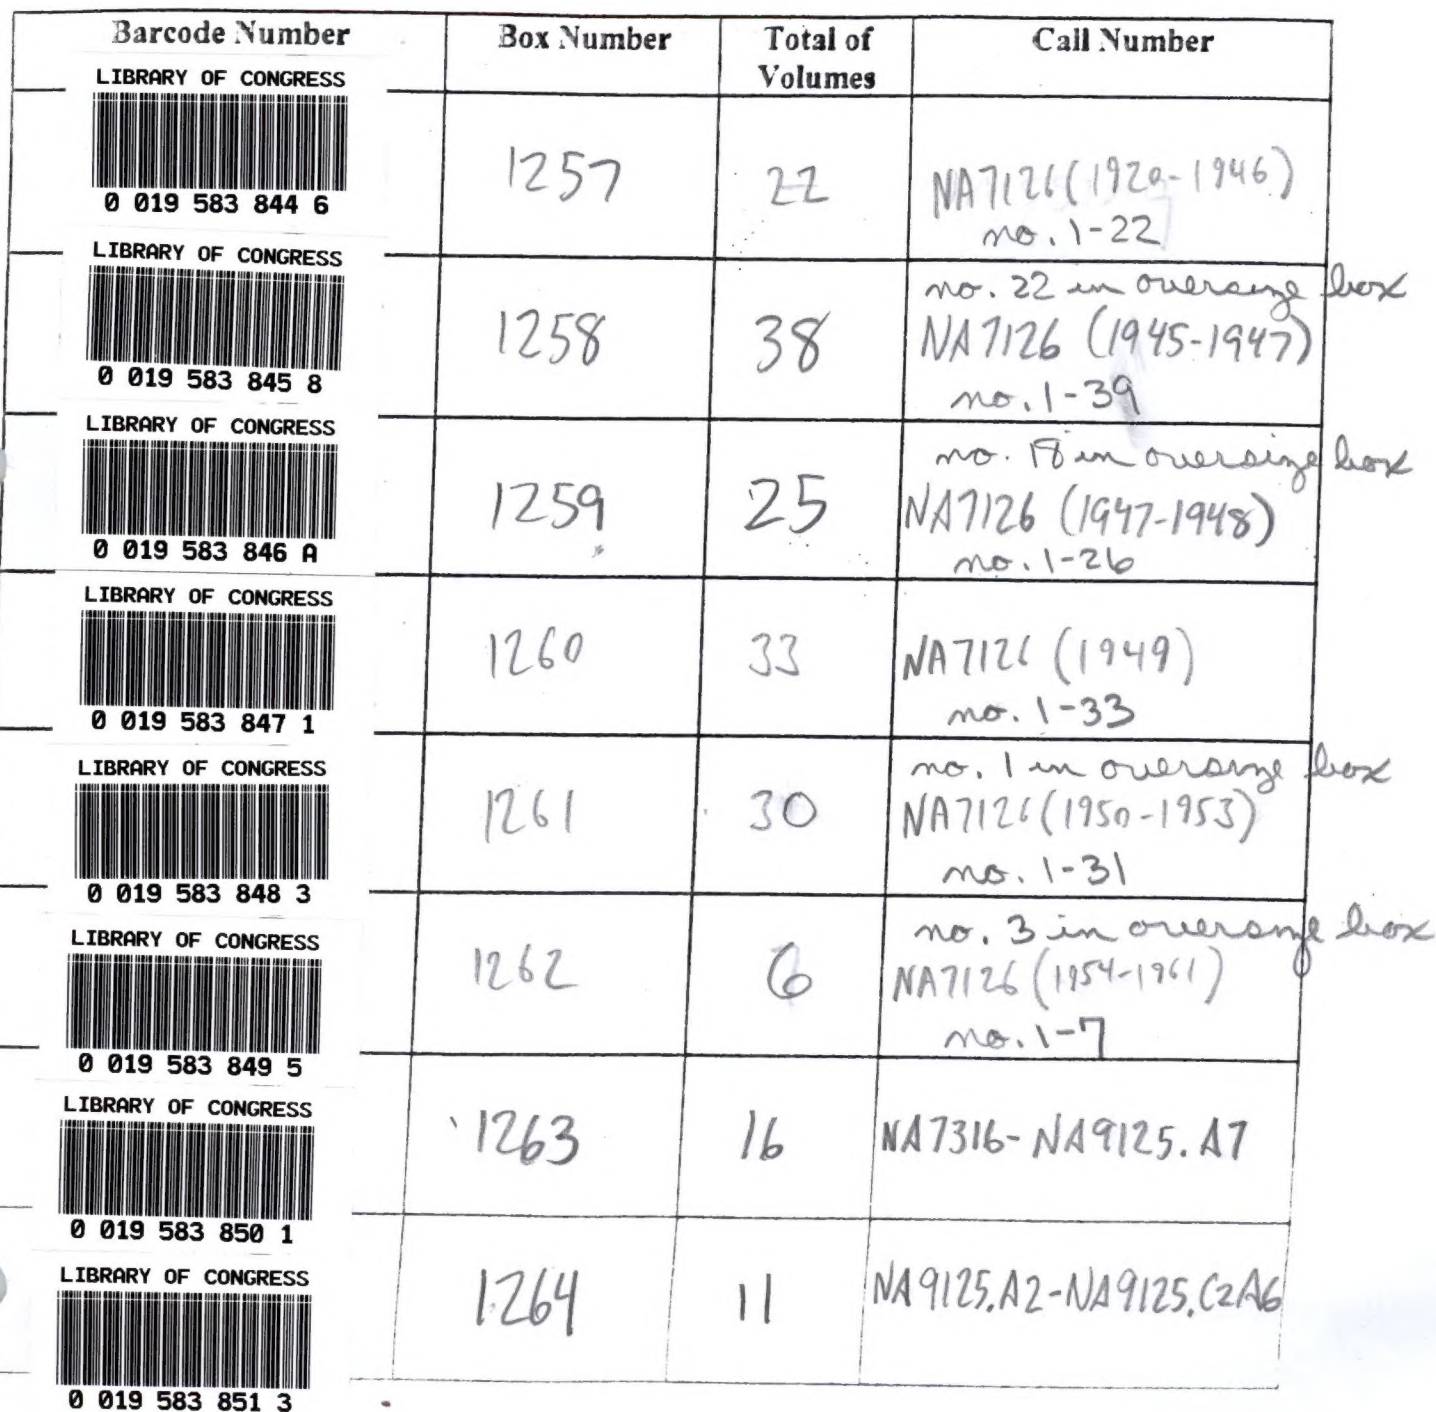 Barcode Number Box Number Total of Volumes Call Number
LIBRARY OF CONGRESS
0 019 583 844 6
1257 22 NA7126(1920-1946)
no. 1-22
LIBRARY OF CONGRESS
0 019 583 845 8
no. 22 in oversize box
1258 38 NA7126 (1945-1947)
no. 1-39
LIBRARY OF CONGRESS
0 019 583 846 A
no. 18 in oversize box
1259 25 NA7126 (1947-1948)
no. 1-26
LIBRARY OF CONGRESS
0 019 583 847 1
1260 33 NA7126 (1949)
no. 1-33
LIBRARY OF CONGRESS
0 019 583 848 3
no. 1 in oversize box
1261 30 NA7126(1950-1953)
no. 1-31
LIBRARY OF CONGRESS
0 019 583 849 5
no. 3 in oversize box
1262 6 NA7126 (1954-1961)
no. 1-7
LIBRARY OF CONGRESS
0 019 583 850 1
1263 16 NA7316-NA9125.A7
LIBRARY OF CONGRESS
0 019 583 851 3
1264 11 NA9125.A2-NA9125.C2A6